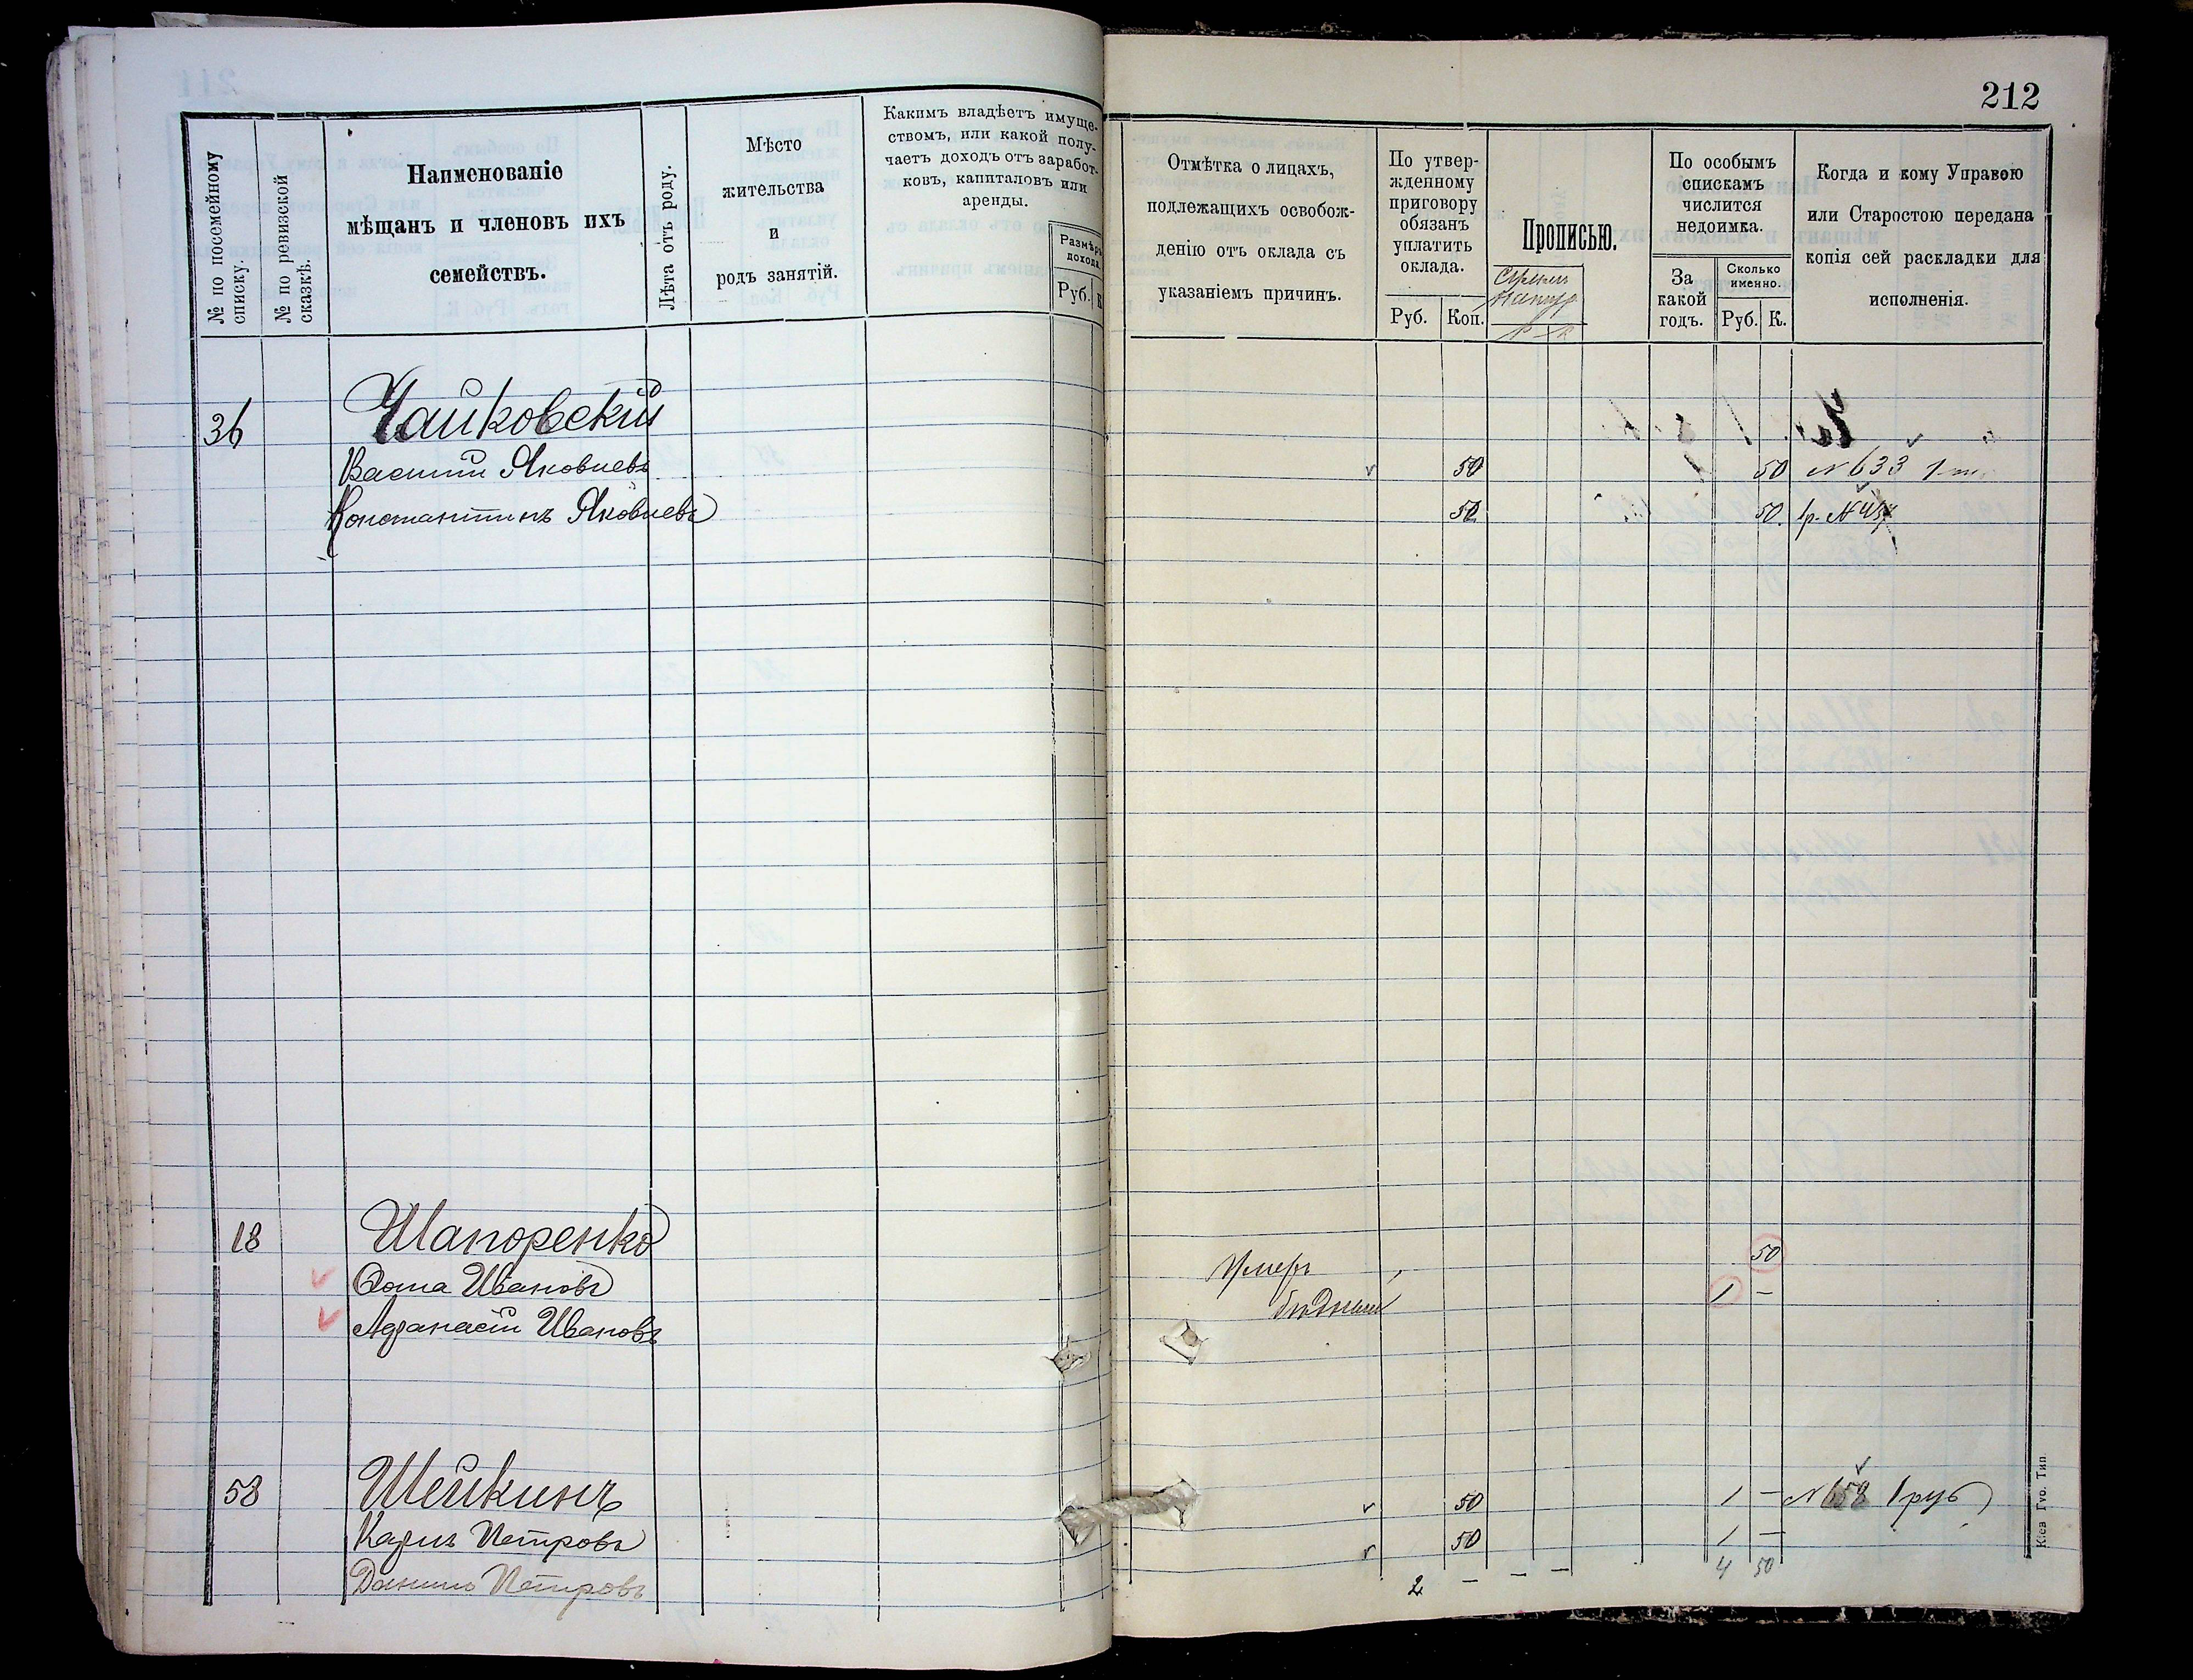 212
№ по посемейному списку.
№ по ревизской сказкѣ.
Наименованіе
мѣщанъ и членовъ ихъ
семействъ.
Лѣта отъ роду.
Мѣсто
жительства
и
родъ занятій.
Какимъ владѣетъ имуще-
ствомъ, или какой полу-
чаетъ доходъ отъ заработ-
ковъ, капиталовъ или
аренды.
Размѣръ
дохода.
Руб. К
Отмѣтка о лицахъ,
подлежащихъ освобож-
денію отъ оклада съ
указаніемъ причинъ.
По утвер-
жденному
приговору
обязанъ
уплатить
оклада.
Руб. Коп.
Прописью.
По особымъ
спискамъ
числится
недоимка.
За
какой
годъ.
Сколько
именно.
Руб. К.
Когда и кому Управою
или Старостою передана
копія сей раскладки для
исполненія.
36 Чайковскій
Василій Яковлевъ 50 50 № 633
Константинъ Яковлевъ 50 50. 1р. №
18 Шапоренко 50
Ѳома Ивановъ Умеръ 1 –
Афанасій Ивановъ бѣдный
58 Шейкинъ 50 1 – № 658 1 руб
Карпъ Петровъ 50 1 –
Данило Петровъ 2 – – – 4 50
Кіев Гуо. Тип.